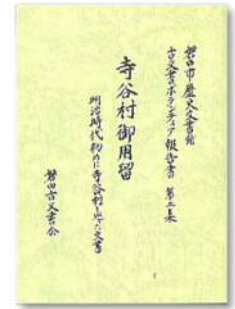 磐田市歴史文書館
古文書ボランティア報告書 第二集
寺谷村御用留
明治時代初めに寺谷村に出た文書
磐田古文書会